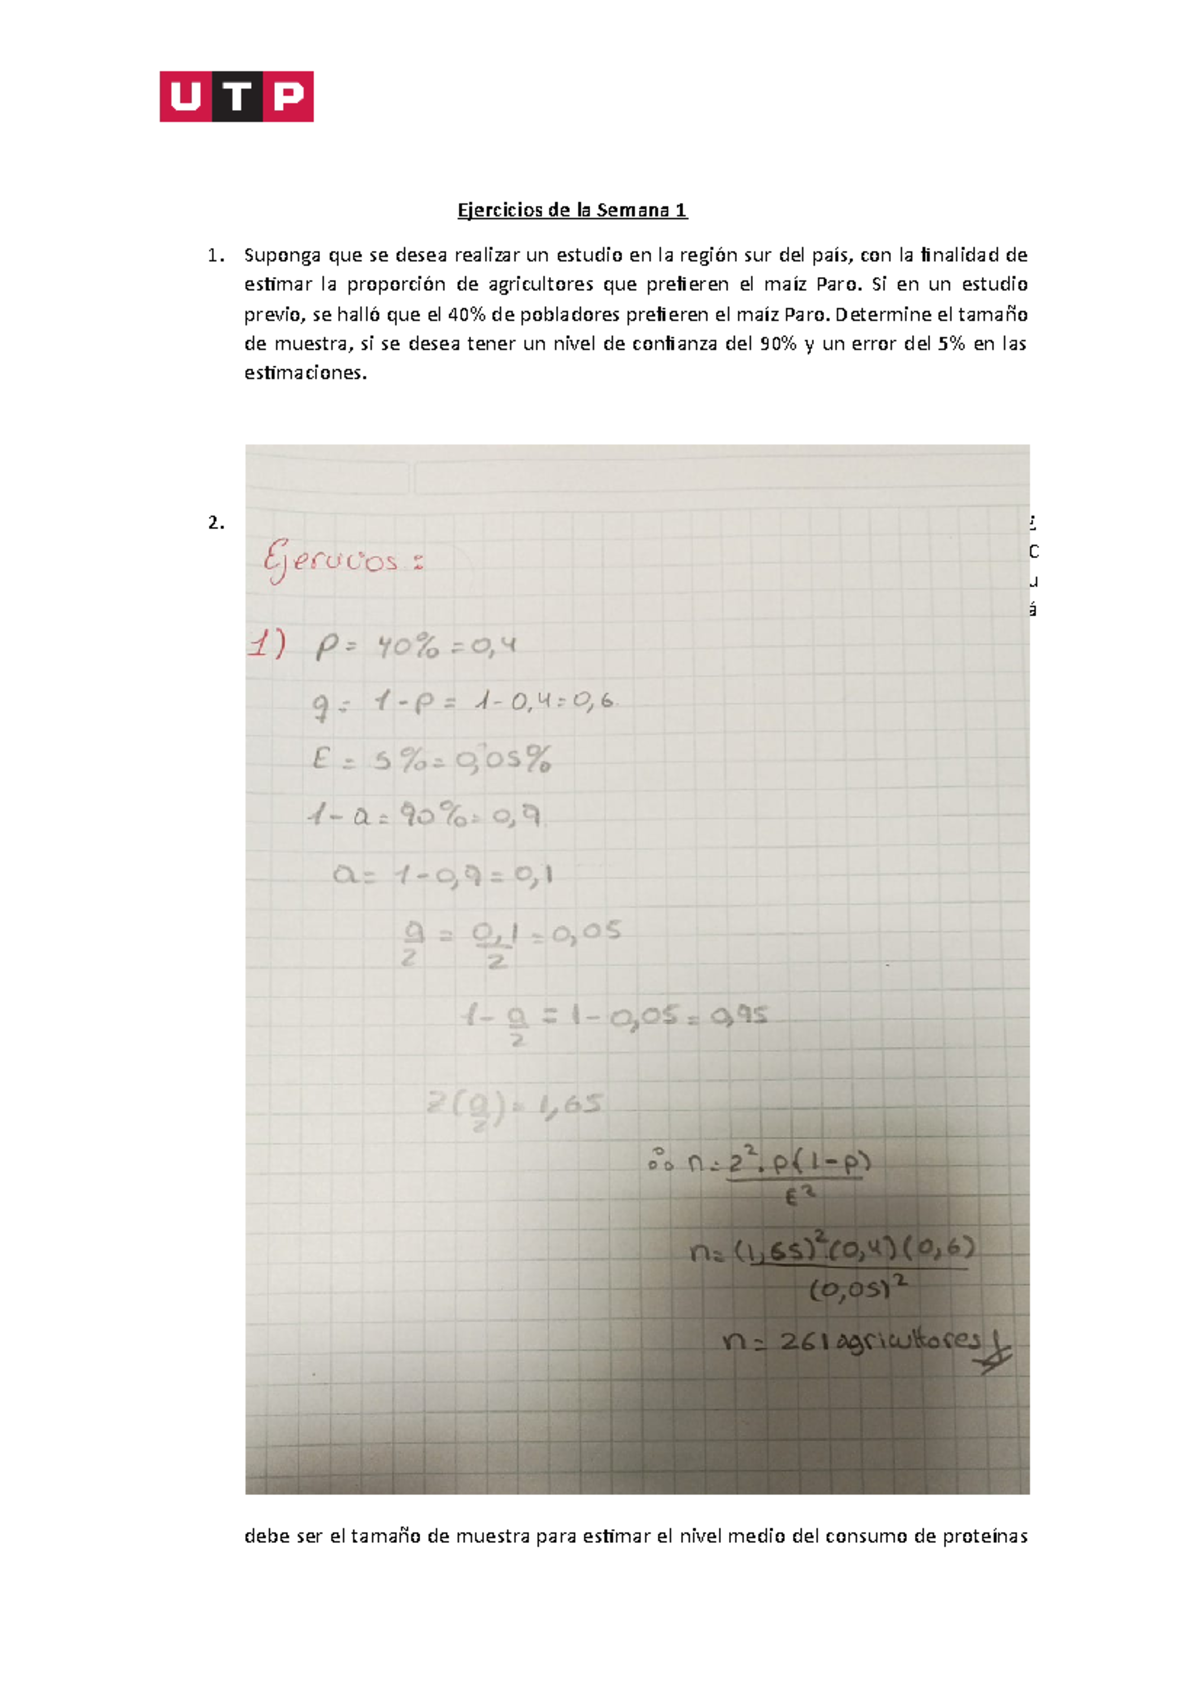 UTP
Ejercicios de la Semana 1
1. Suponga que se desea realizar un estudio en la región sur del país, con la finalidad de
estimar la proporción de agricultores que prefieren el maíz Paro. Si en un estudio
previo, se halló que el 40% de pobladores prefieren el maíz Paro. Determine el tamaño
de muestra, si se desea tener un nivel de confianza del 90% y un error del 5% en las
estimaciones.
2. ¿
C
u
á
Ejercicios:
1) p = 40% = 0,4
q = 1 - p = 1 - 0,4 = 0,6
E = 5% = 0,05%
1 - a = 90% = 0,9
a = 1 - 0,9 = 0,1
a/2 = 0,1/2 = 0,05
1 - a/2 = 1 - 0,05 = 0,95
Z(a/2) = 1,65
∴ n = z². p(1-p)
E²
n = (1,65)²(0,4)(0,6)
(0,05)²
n = 261 agricultores
debe ser el tamaño de muestra para estimar el nivel medio del consumo de proteínas